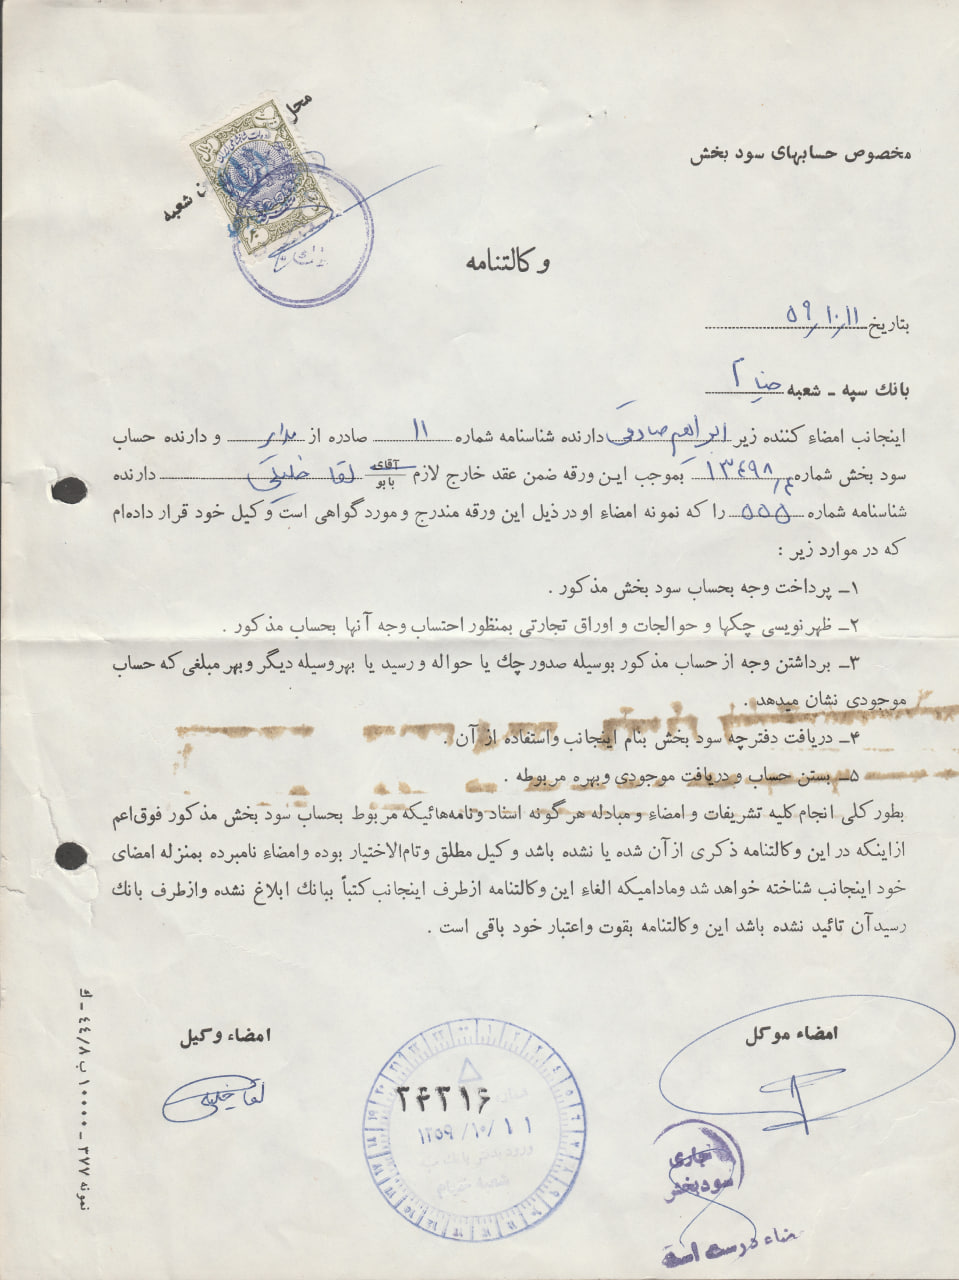 محل
شعبه
مخصوص حسابهای سود بخش
وکالتنامه
بتاریخ ۵۹/۱۰/۱۱
بانك سپه ـ شعبه
اینجانب امضاء کننده زیر ابراهیم صادقی دارنده شناسنامه شماره ۱۱ صادره از و دارنده حساب
سود بخش شماره ۱۳۴۹۸ بموجب این ورقه ضمن عقد خارج لازم آقای بانو لقا خلیلی دارنده
شناسنامه شماره ۵۵۵ را که نمونه امضاء او در ذیل این ورقه مندرج و مورد گواهی است وکیل خود قرار داده‌ام
که در موارد زیر :
۱ـ پرداخت وجه بحساب سود بخش مذکور .
۲ـ ظهرنویسی چکها و حوالجات و اوراق تجارتی بمنظور احتساب وجه آنها بحساب مذکور .
۳ـ برداشتن وجه از حساب مذکور بوسیله صدور چك یا حواله و رسید یا بهروسیله دیگر و بهر مبلغی که حساب
موجودی نشان میدهد .
۴ـ دریافت دفترچه سود بخش بنام اینجانب و استفاده از آن .
۵ـ بستن حساب و دریافت موجودی و بهره مربوطه .
بطور کلی انجام کلیه تشریفات و امضاء و مبادله هر گونه اسناد و نامه‌هائیکه مربوط بحساب سود بخش مذکور فوق اعم
از اینکه در این وکالتنامه ذکری از آن شده یا نشده باشد وکیل مطلق و تام‌الاختیار بوده و امضاء نامبرده بمنزله امضای
خود اینجانب شناخته خواهد شد و مادامیکه الغاء این وکالتنامه از طرف اینجانب کتباً ببانك ابلاغ نشده و از طرف بانك
رسید آن تائید نشده باشد این وکالتنامه بقوت و اعتبار خود باقی است .
امضاء موکل
امضاء وکیل
لقا خلیلی
۲۴۳۱۶
۱۳۵۹/۱۰/۱۱
جاری
سود بخش
امضاء درست است
نمونه ۳۷۷ ـ ۱۰۰۰۰ ب ۴۴/۸ ـ ك